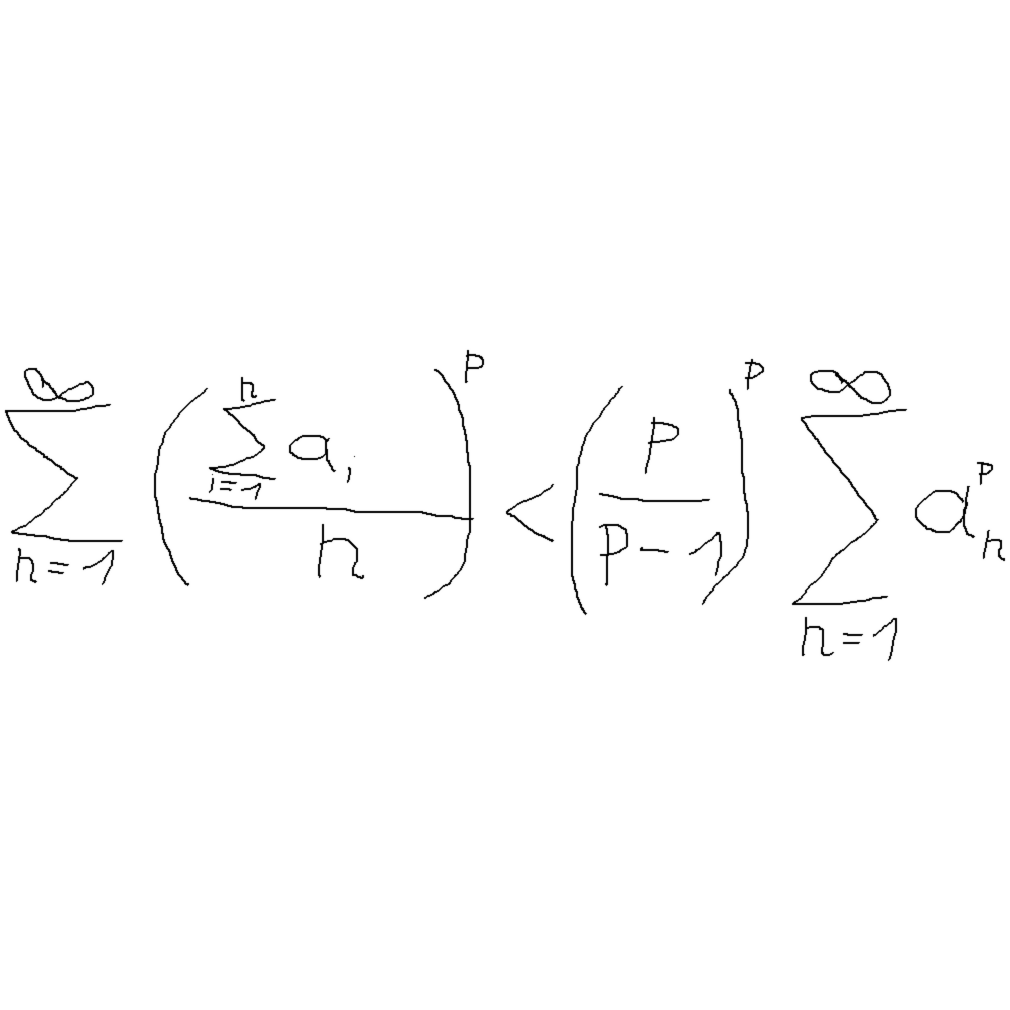 $$\sum_{n=1}^{\infty} \left( \frac{\sum_{i=1}^{n} a_i}{n} \right)^p < \left( \frac{p}{p-1} \right)^p \sum_{n=1}^{\infty} a_n^p$$